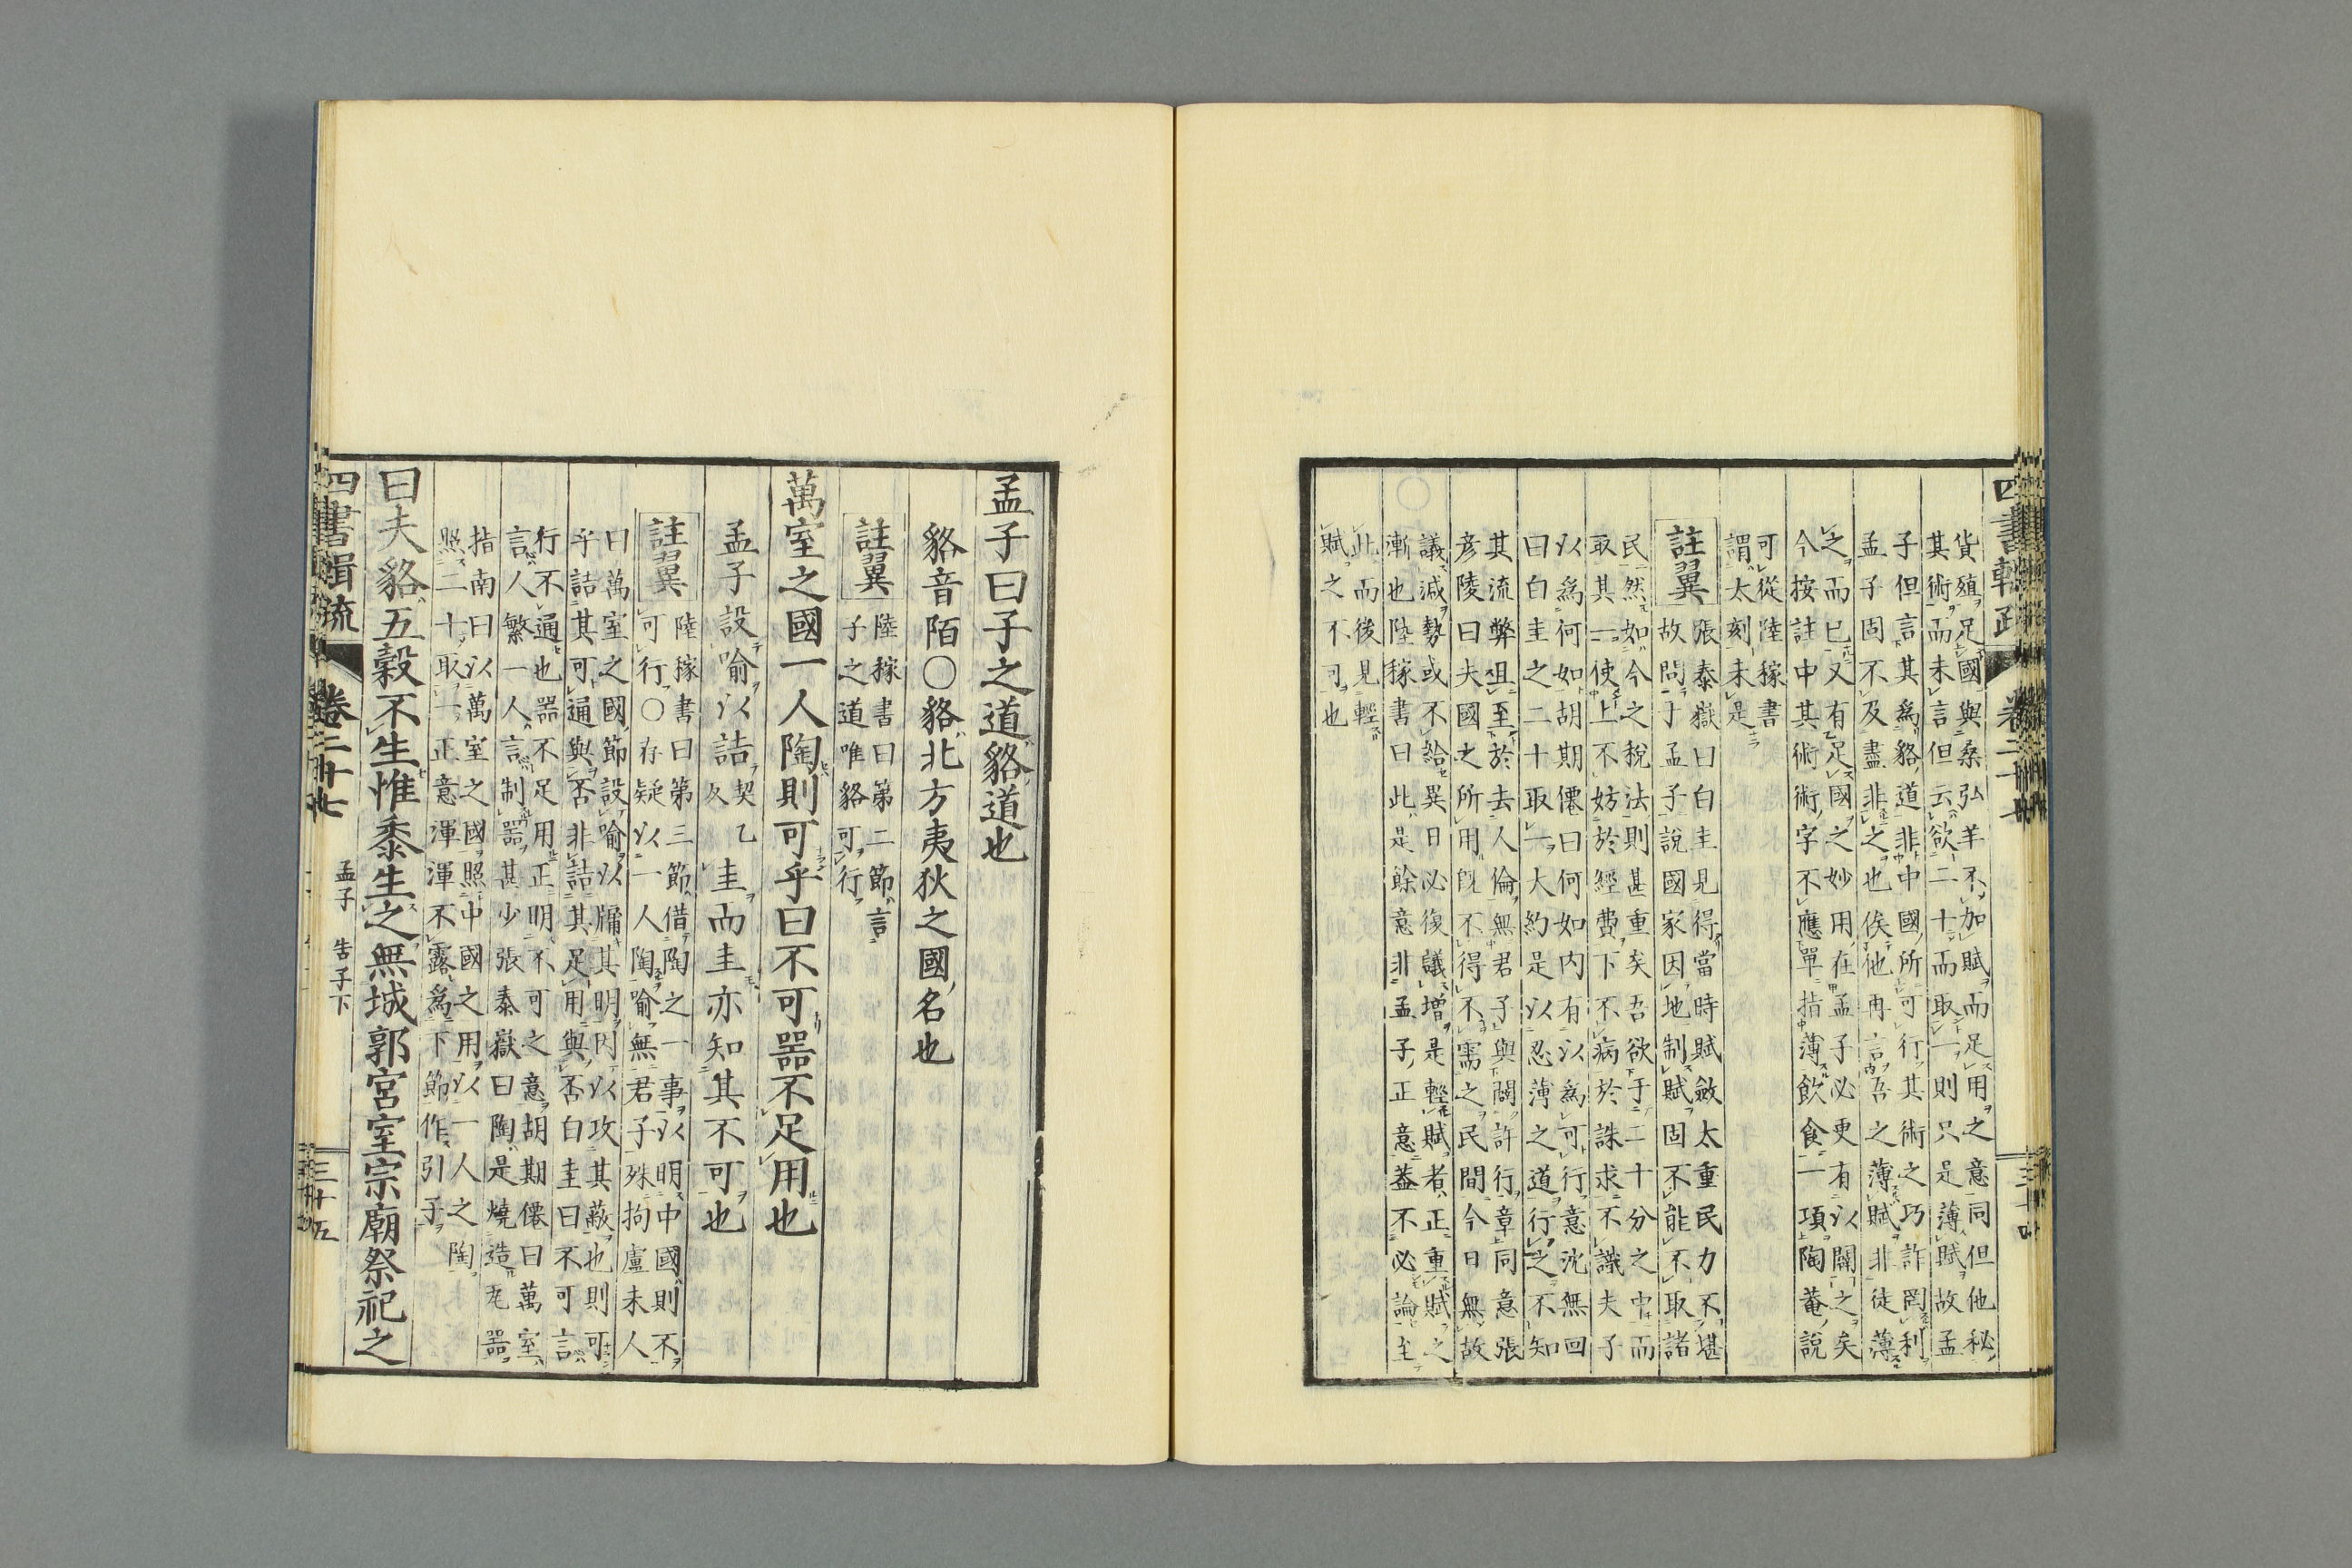 貨殖足國與桑弘羊不加賦而足用之意同但他秘
其術而未言但云欲二十而取一則只是薄賦故孟
子但言其為貉道非中國所可行其術之巧許罔利
孟子固不及盡非之也俟他再言吾之薄賦非徒薄
之而已又有足國之妙用在孟子必更有以闢之矣
今按註中其術術字不應單指薄飲食一項陶菴說
可從陸稼書
謂太刻未是
註翼
張泰嶽曰白圭見得當時賦斂太重民力不堪
故問于孟子說國家因地制賦固不能不取諸
民然如今之稅法則甚重矣吾欲于二十分之中而
取其一使上不妨於經費下不病於誅求不識夫子
以為何如胡期僊曰何如內有以為可行意沈無回
曰白圭之二十取一大約是以忍薄之道行之不知
其流弊俎至於去人倫無君子與闢許行章同意張
彦陵曰夫國之所用既不得不需之民間今日無故
議減勢或不給異日必復議增是輕賦者正重賦之
漸也陸稼書曰此是餘意非孟子正意蓋不必論至
此而後見輕
賦之不可也
四書輯疏
卷二十七
孟子曰子之道貉道也
貉音陌○貉北方夷狄之國名也
註翼
陸稼書曰第二節言
子之道唯貉可行
萬室之國一人陶則可乎曰不可器不足用也
孟子設喻以詰契乙反圭而圭亦知其不可也
註翼
陸稼書曰第三節借陶之一事以明中國則不
可行○存疑以一人陶喻無君子殊拘盧未人
曰萬室之國節設喻以牖其明因以攻其蔽也則可
乎詰其可通與否非詰其足用與否白圭曰不可言
行不通也器不足用正明不可之意胡期僊曰萬室
言人繁一人言制器甚少張泰嶽曰陶是燒造瓦器
指南曰以萬室之國照中國之用以一人之陶
照二十取一正意渾渾不露為下節作引子
曰夫貉五穀不生惟黍生之無城郭宮室宗廟祭祀之
四書輯疏
卷二十七
孟子 告子下
三十五